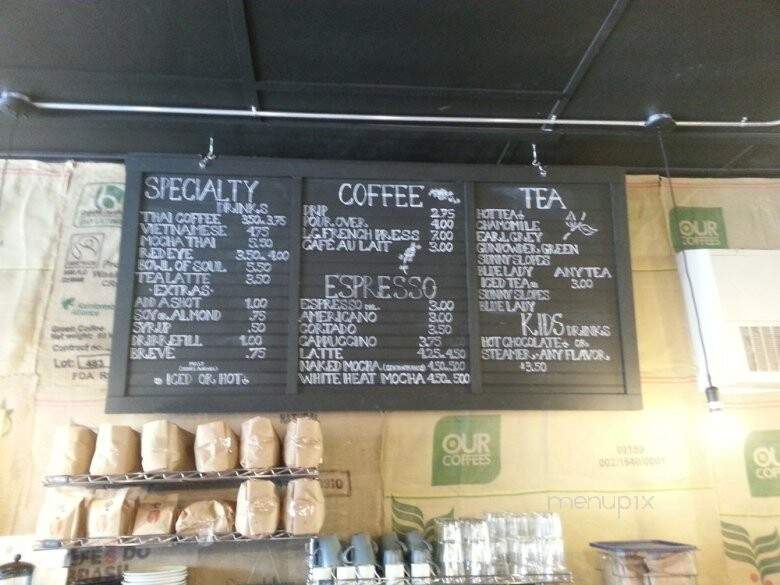 SPECIALTY
DRINKS
THAI COFFEE 3.50 3.75
VIETNAMESE 4.75
MOCHA THAI 5.50
RED EYE 3.50 4.00
BOWL OF SOUL 5.50
TEA LATTE 3.50
- EXTRAS -
ADD A SHOT 1.00
SOY OR ALMOND .75
SYRUP .50
DRIP REFILL 1.00
BREVE .75
MOST
ICED OR HOT
COFFEE
DRIP 2.75
POUR OVER 4.00
LG. FRENCH PRESS 7.00
CAFE AU LAIT 3.00
ESPRESSO
ESPRESSO 3.00
AMERICANO 3.00
CORTADO 3.50
CAPPUCCINO 3.75
LATTE 4.25-4.50
NAKED MOCHA 4.50-5.00
WHITE HEAT MOCHA 4.50-5.00
TEA
HOT TEA
CHAMOMILE
EARL GREY
GUNPOWDER GREEN
SUNNY SLOPES
BLUE LADY ANY TEA
ICED TEA 3.00
SUNNY SLOPES
BLUE LADY
KIDS DRINKS
HOT CHOCOLATE OR
STEAMER, ANY FLAVOR,
$3.50
OUR
OUR
COFFEES
OUR
COFFEES
Rainforest
Alliance
Green Coffee
Lot: 483
FDA
09159
002/1640/0001
DO
BRASIL
menupix